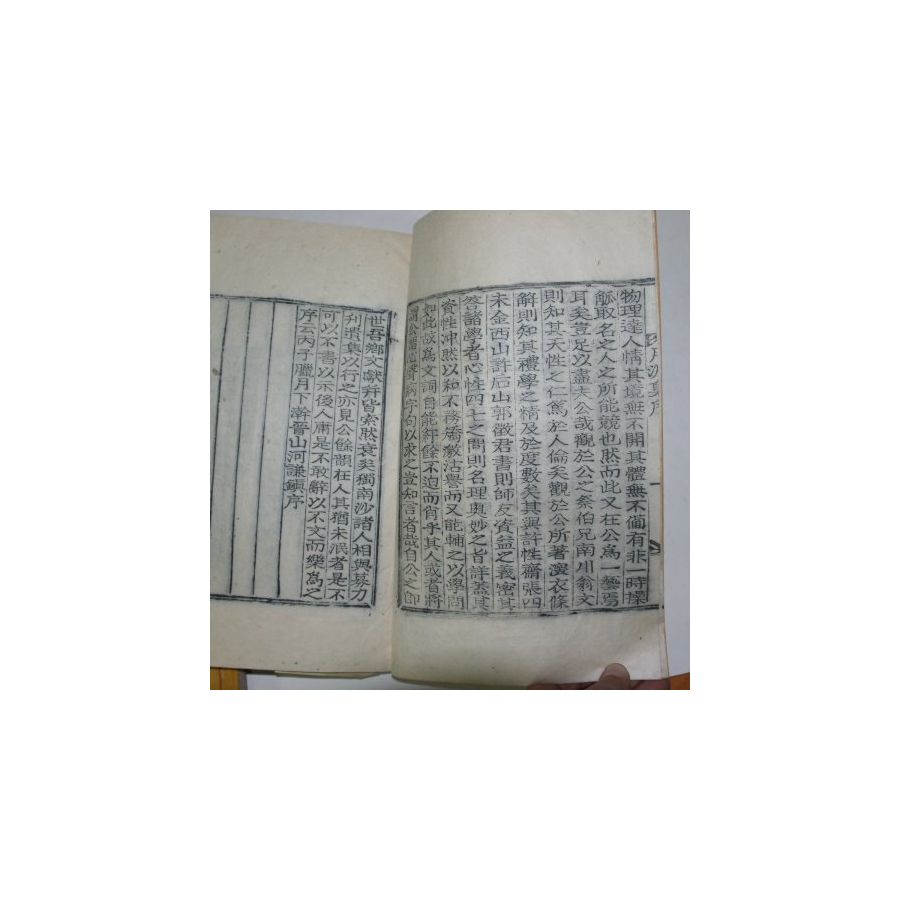 物理達人情其境無不開其體無不備有非一時操
觚取名之人之所能競也然而此又在公爲一藝焉
耳矣豈足以盡夫公哉觀於公之祭伯兄南川翁文
則知其天性之仁篤於人倫矣觀於公所著深衣條
解則知其禮學之情及於度數矣其與許性齋張四
未金西山許后山郭徵君書則師友資益之義密其
答諸學者心性四七之問則名理奧妙之皆詳蓋其
資性冲然以和不務矯激沽譽而又能輔之以學問
如此故爲文詞自能紆餘不迫而肖乎其人或者將
字句以求之豈知言者哉自公之卽
世吾鄉文獻幷皆索然衰矣獨南沙諸人相與募力
刊遺集以行之亦見公餘韻在人其猶未泯者是不
可以不書以示後人肅是不敢辭以不文而樂爲之
序云丙子臘月下澣晉山河謙鎭序